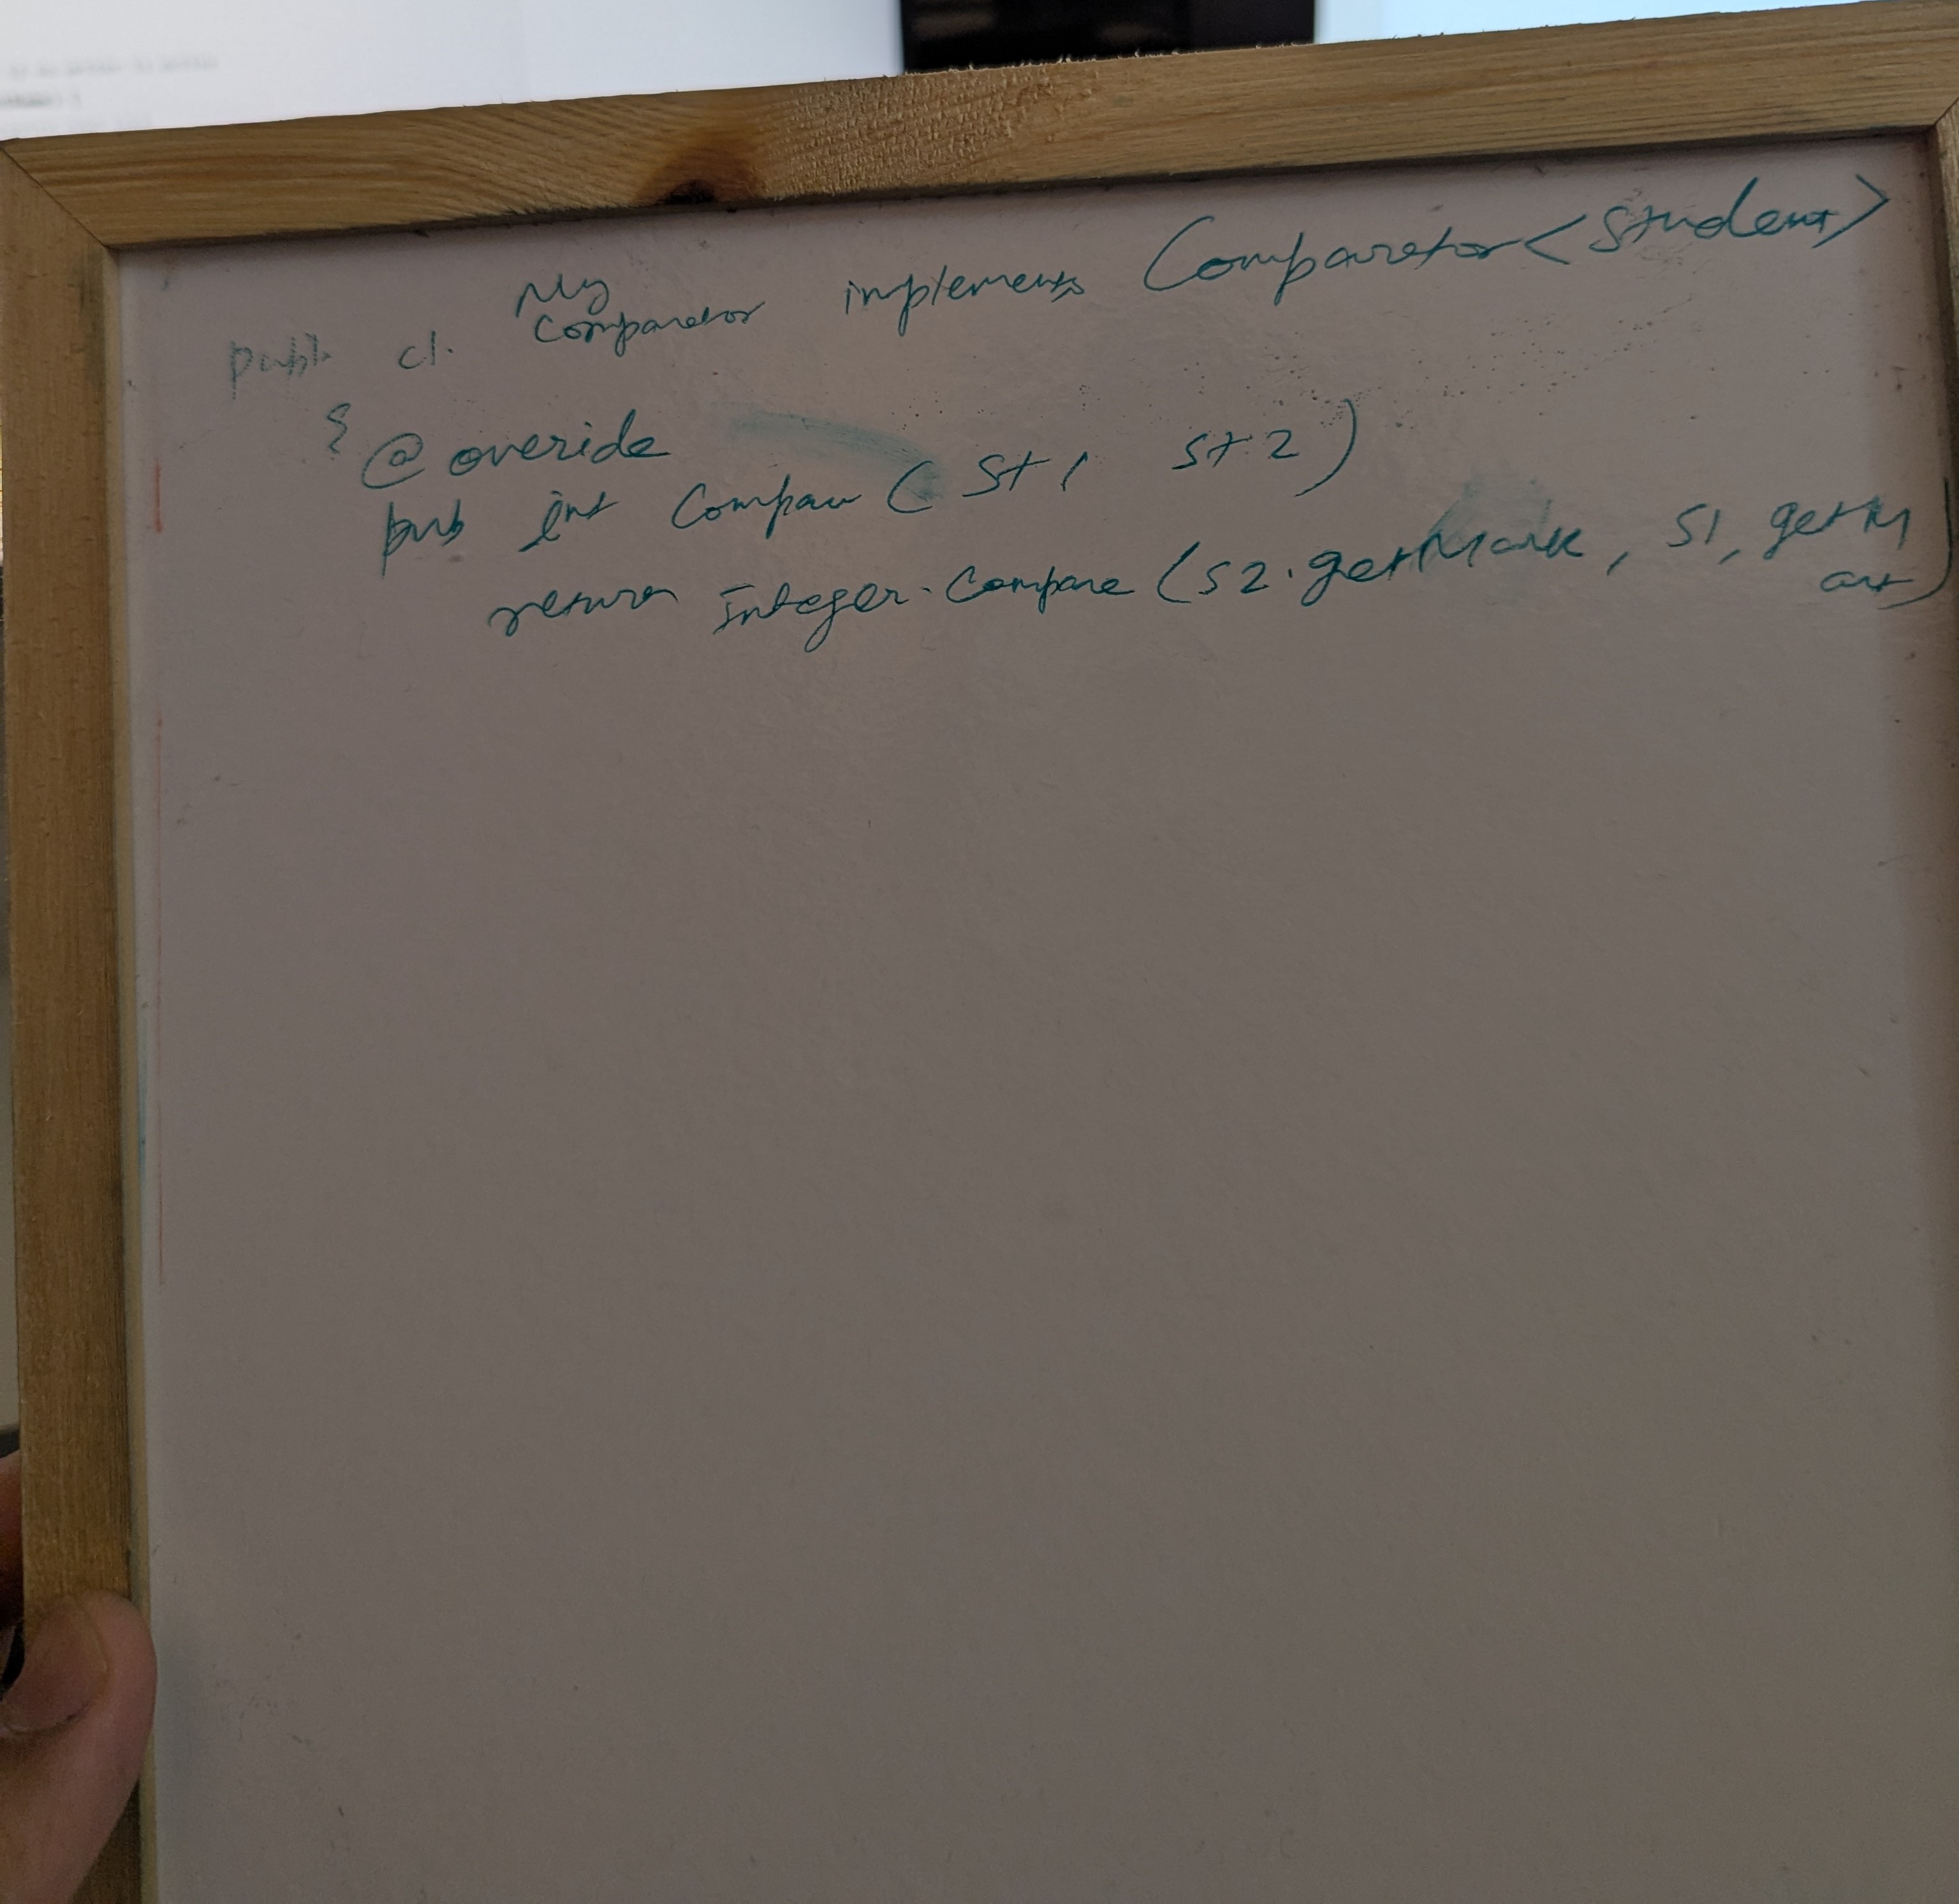 publi cl. My Comparator implements Comparator<Student>
{ @ overide
pub int Compare ( St 1 St 2 )
return Integer. Compare (S2. getMark, S1, getM ark)